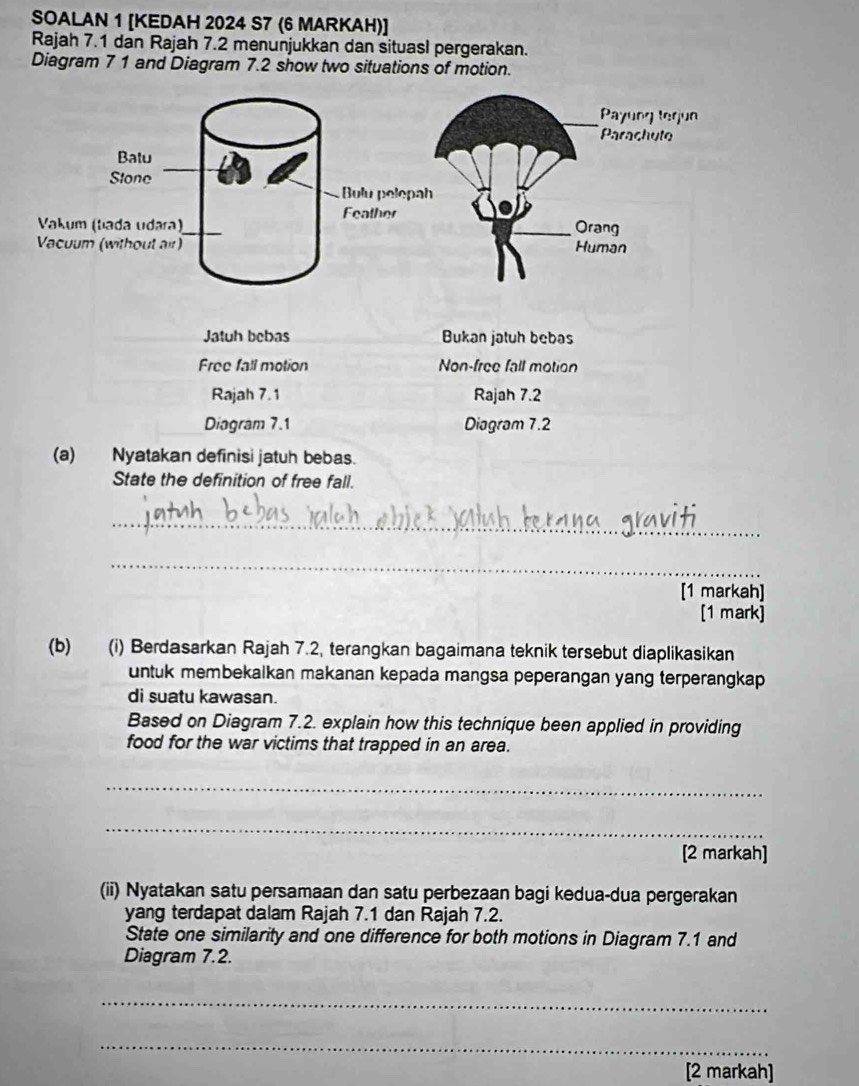 SOALAN 1 [KEDAH 2024 S7 (6 MARKAH)]
Rajah 7.1 dan Rajah 7.2 menunjukkan dan situasI pergerakan.
Diagram 7 1 and Diagram 7.2 show two situations of motion.
Payung terjun
Parachute
Batu
Stone
Bulu pelepah
Feather
Vakum (tiada udara)
Vacuum (without air)
Orang
Human
Jatuh bebas
Bukan jatuh bebas
Free fall motion
Non-free fall motion
Rajah 7.1
Rajah 7.2
Diagram 7.1
Diagram 7.2
(a) Nyatakan definisi jatuh bebas.
State the definition of free fall.
jatuh bebas ialah objek jatuh kerana graviti
[1 markah]
[1 mark]
(b) (i) Berdasarkan Rajah 7.2, terangkan bagaimana teknik tersebut diaplikasikan
untuk membekalkan makanan kepada mangsa peperangan yang terperangkap
di suatu kawasan.
Based on Diagram 7.2. explain how this technique been applied in providing
food for the war victims that trapped in an area.
[2 markah]
(ii) Nyatakan satu persamaan dan satu perbezaan bagi kedua-dua pergerakan
yang terdapat dalam Rajah 7.1 dan Rajah 7.2.
State one similarity and one difference for both motions in Diagram 7.1 and
Diagram 7.2.
[2 markah]